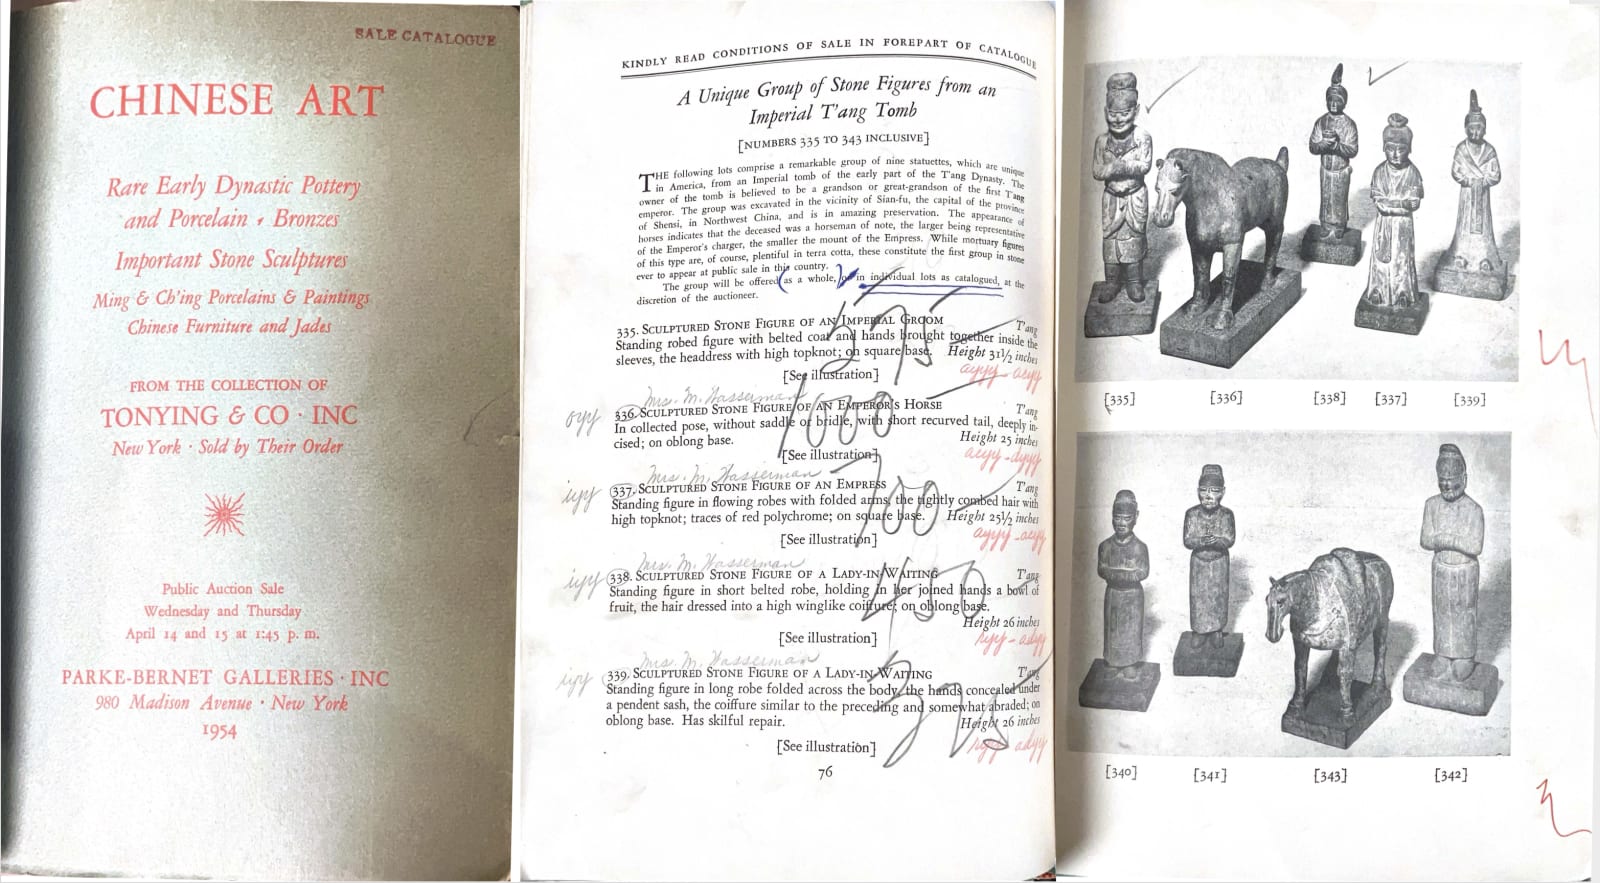 SALE CATALOGUE
CHINESE ART
Rare Early Dynastic Pottery
and Porcelain · Bronzes
Important Stone Sculptures
Ming & Ch'ing Porcelains & Paintings
Chinese Furniture and Jades
FROM THE COLLECTION OF
TONYING & CO · INC
New York · Sold by Their Order
Public Auction Sale
Wednesday and Thursday
April 14 and 15 at 1:45 p. m.
PARKE-BERNET GALLERIES · INC
980 Madison Avenue · New York
1954
KINDLY READ CONDITIONS OF SALE IN FOREPART OF CATALOGUE
A Unique Group of Stone Figures from an
Imperial T'ang Tomb
[NUMBERS 335 TO 343 INCLUSIVE]
THE following lots comprise a remarkable group of nine statuettes, which are unique
in America, from an Imperial tomb of the early part of the T'ang Dynasty. The
owner of the tomb is believed to be a grandson or great-grandson of the first T'ang
emperor. The group was excavated in the vicinity of Sian-fu, the capital of the province
of Shensi, in Northwest China, and is in amazing preservation. The appearance of
horses indicates that the deceased was a horseman of note, the larger being representative
of the Emperor's charger, the smaller the mount of the Empress. While mortuary figures
of this type are, of course, plentiful in terra cotta, these constitute the first group in stone
ever to appear at public sale in this country.
The group will be offered as a whole, or in individual lots as catalogued, at the
discretion of the auctioneer.
575
335. SCULPTURED STONE FIGURE OF AN IMPERIAL GROOM T'ang
Standing robed figure with belted coat and hands brought together inside the
sleeves, the headdress with high topknot; on square base. Height 31½ inches
[See illustration]
ayyy - aeyy
Mrs. M. Wasserman
1000
oyy 336. SCULPTURED STONE FIGURE OF AN EMPEROR'S HORSE T'ang
In collected pose, without saddle or bridle, with short recurved tail, deeply in-
cised; on oblong base. Height 25 inches
[See illustration]
aeyy - dyyy
Mrs. M. Wasserman
700
iyy 337. SCULPTURED STONE FIGURE OF AN EMPRESS T'ang
Standing figure in flowing robes with folded arms, the tightly combed hair with
high topknot; traces of red polychrome; on square base. Height 25½ inches
[See illustration]
ayyy - aeyy
Mrs. M. Wasserman
450
iyy 338. SCULPTURED STONE FIGURE OF A LADY-IN-WAITING T'ang
Standing figure in short belted robe, holding in her joined hands a bowl of
fruit, the hair dressed into a high winglike coiffure; on oblong base.
Height 26 inches
[See illustration]
Mrs. M. Wasserman
iyy 339. SCULPTURED STONE FIGURE OF A LADY-IN-WAITING T'ang
Standing figure in long robe folded across the body, the hands concealed under
a pendent sash, the coiffure similar to the preceding and somewhat abraded; on
oblong base. Has skilful repair. Height 26 inches
[See illustration]
76
[335] [336] [338] [337] [339]
[340] [341] [343] [342]